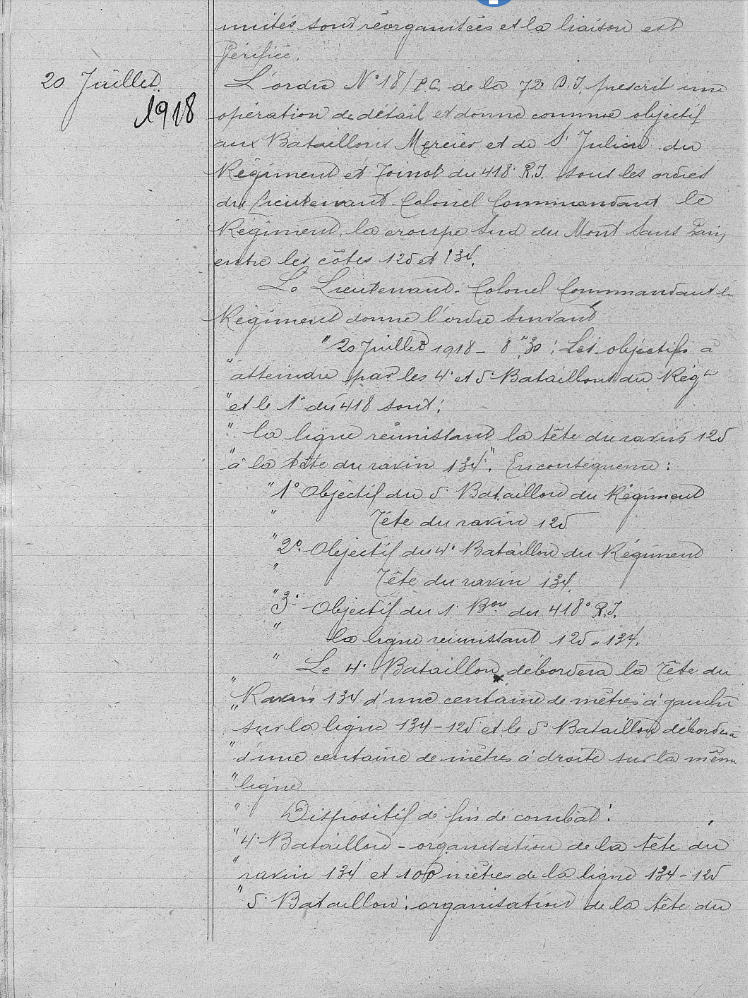 unités sont réorganisées et la liaison est
vérifiée.
20 Juillet
1918
L'ordre N° 18/P.C. de la 72 D.I. prescrit une
opération de détail et donne comme objectif
aux Bataillons Mercier et de St Julien du
Régiment et Toinot du 418e R.I. sous les ordres
du Lieutenant-Colonel Commandant le
Régiment, la croupe Sud du Mont Sans Pain,
entre les côtes 125 et 134.
Le Lieutenant-Colonel Commandant le
Régiment donne l'ordre suivant
"20 Juillet 1918 - 8h30 : Les objectifs à
"atteindre par les 4e et 5e Bataillons du Régt
"et le 1er du 418 sont :
"la ligne réunissant la tête du ravin 125
"à la tête du ravin 134". En conséquence :
"1° Objectif du 5e Bataillon du Régiment
" Tête du ravin 125
"2° Objectif du 4e Bataillon du Régiment
" Tête du ravin 134.
"3° Objectif du 1er Bon du 418e R.I.
" la ligne réunissant 125-134.
" Le 4e Bataillon débordera la tête du
"Ravin 134 d'une centaine de mètres à gauche
"sur la ligne 134-125 et le 5e Bataillon débordera
"d'une centaine de mètres à droite sur la même
"ligne
" Dispositif de fin de combat :
"4e Bataillon - organisation de la tête du
"ravin 134 et 100 mètres de la ligne 134-125
"5e Bataillon : organisation de la tête du